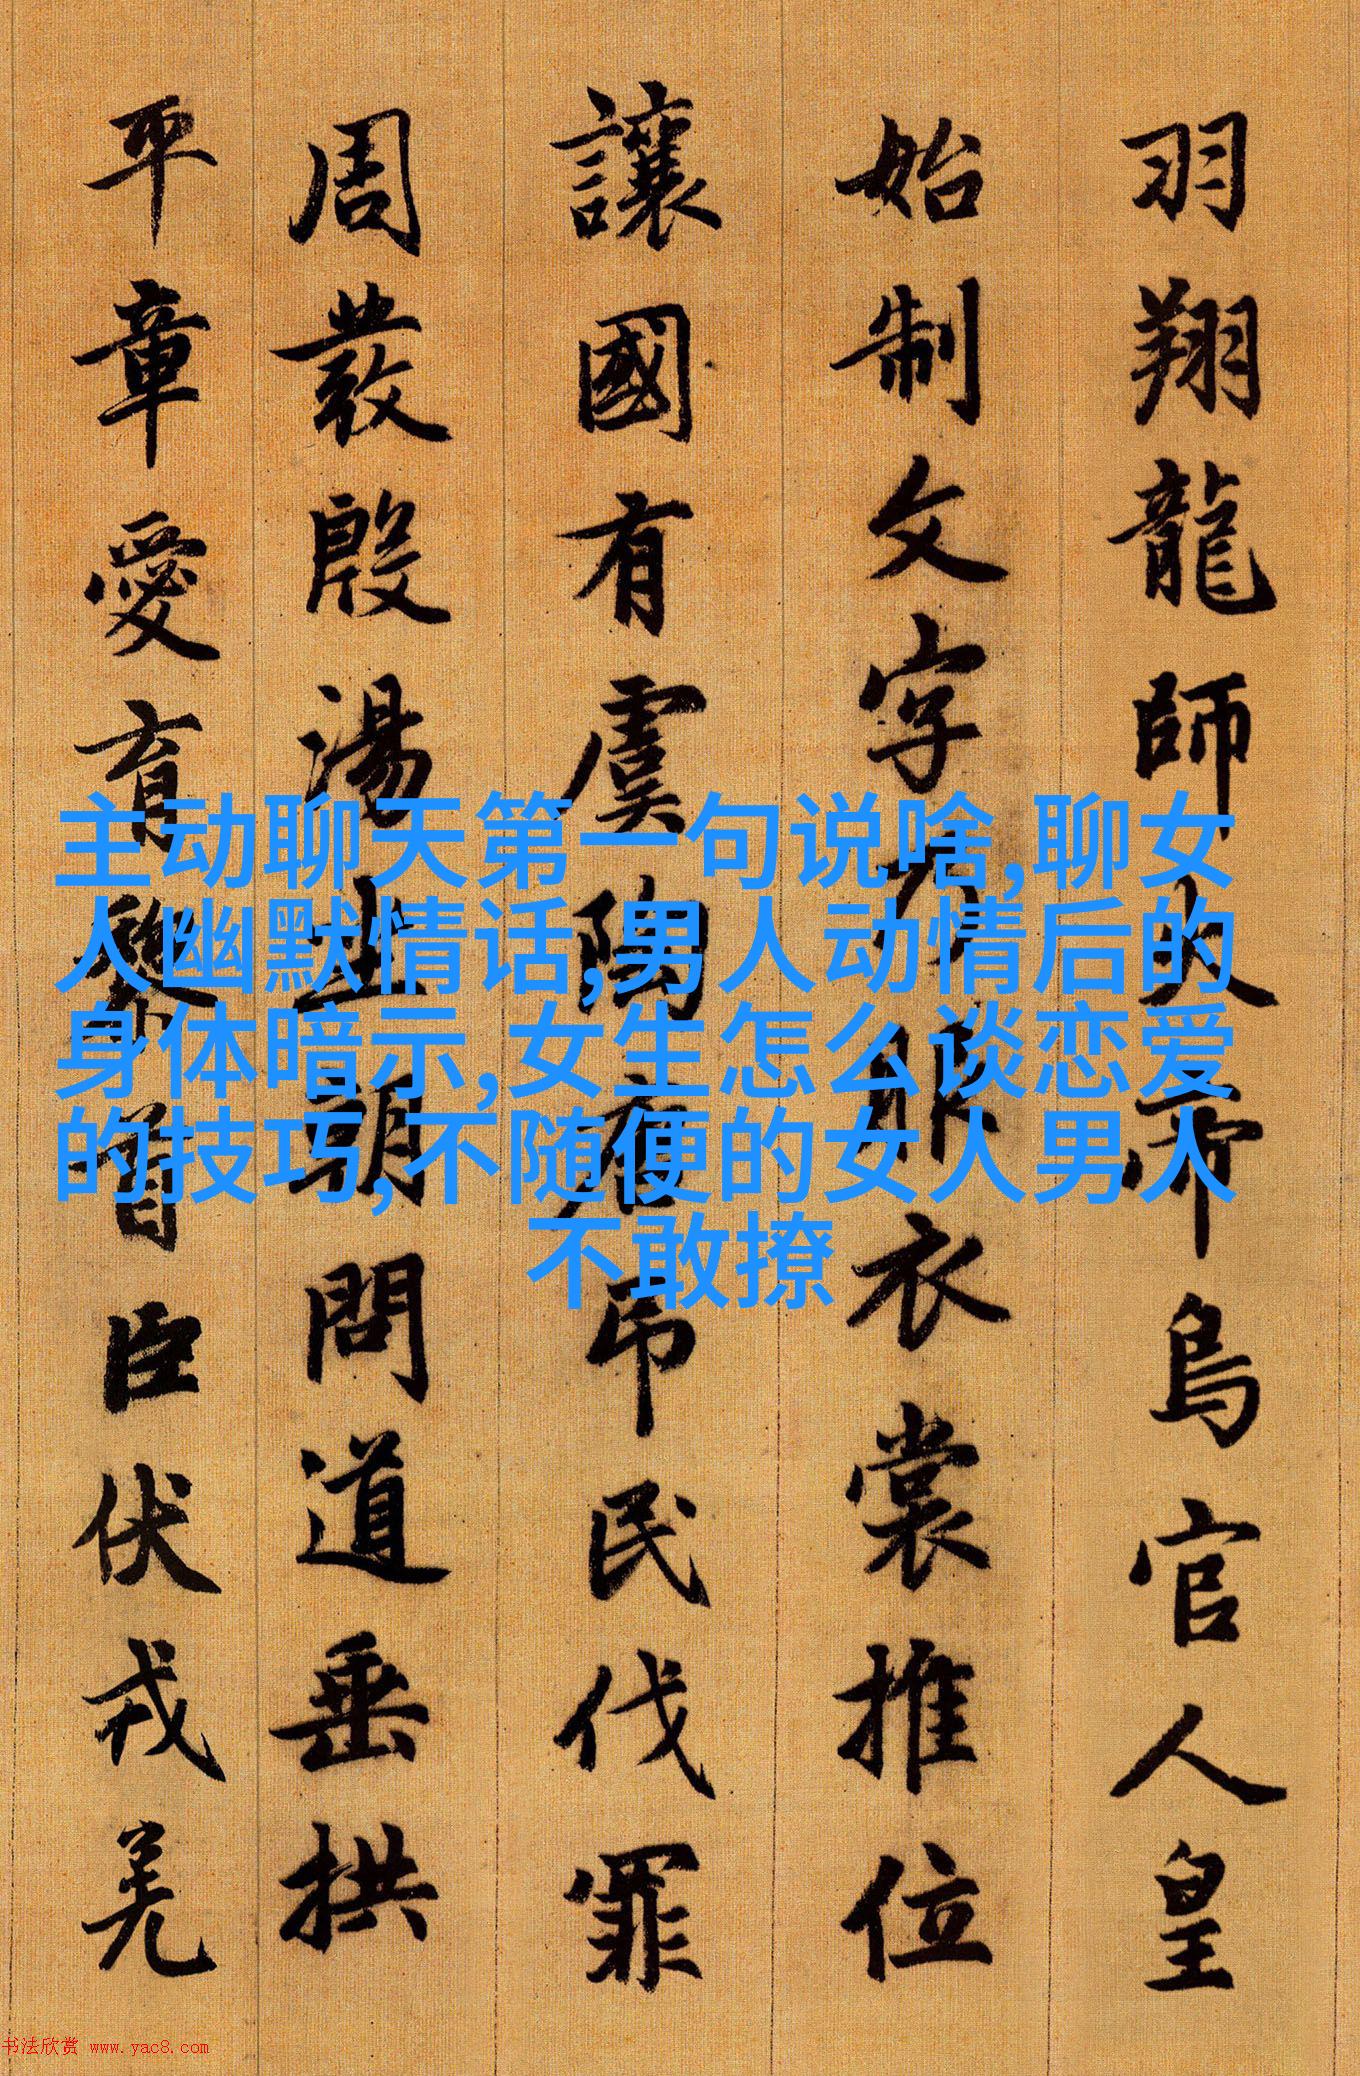 羽翔龍師火帝鳥官人皇
始制文字乃服衣裳推位
讓國有虞陶唐吊民伐罪
周發殷湯坐朝問道垂拱
平章愛育黎首臣伏戎羌
主动聊天第一句说啥,聊女
人幽默情话,男人动情后的
身体暗示,女生怎么谈恋爱
的技巧,不随便的女人男人
不敢撩
书法欣赏 www.yac8.com